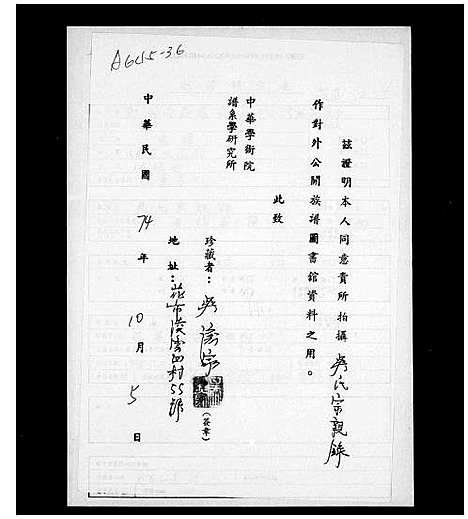 A645-36
茲證明本人同意貴所拍攝吳氏宗親錄
作對外公開族譜圖書舘資料之用。
此致
中華學術院
譜系學研究所
珍藏者：吳
（簽章）
地址：村55號
中華民國74年10月5日